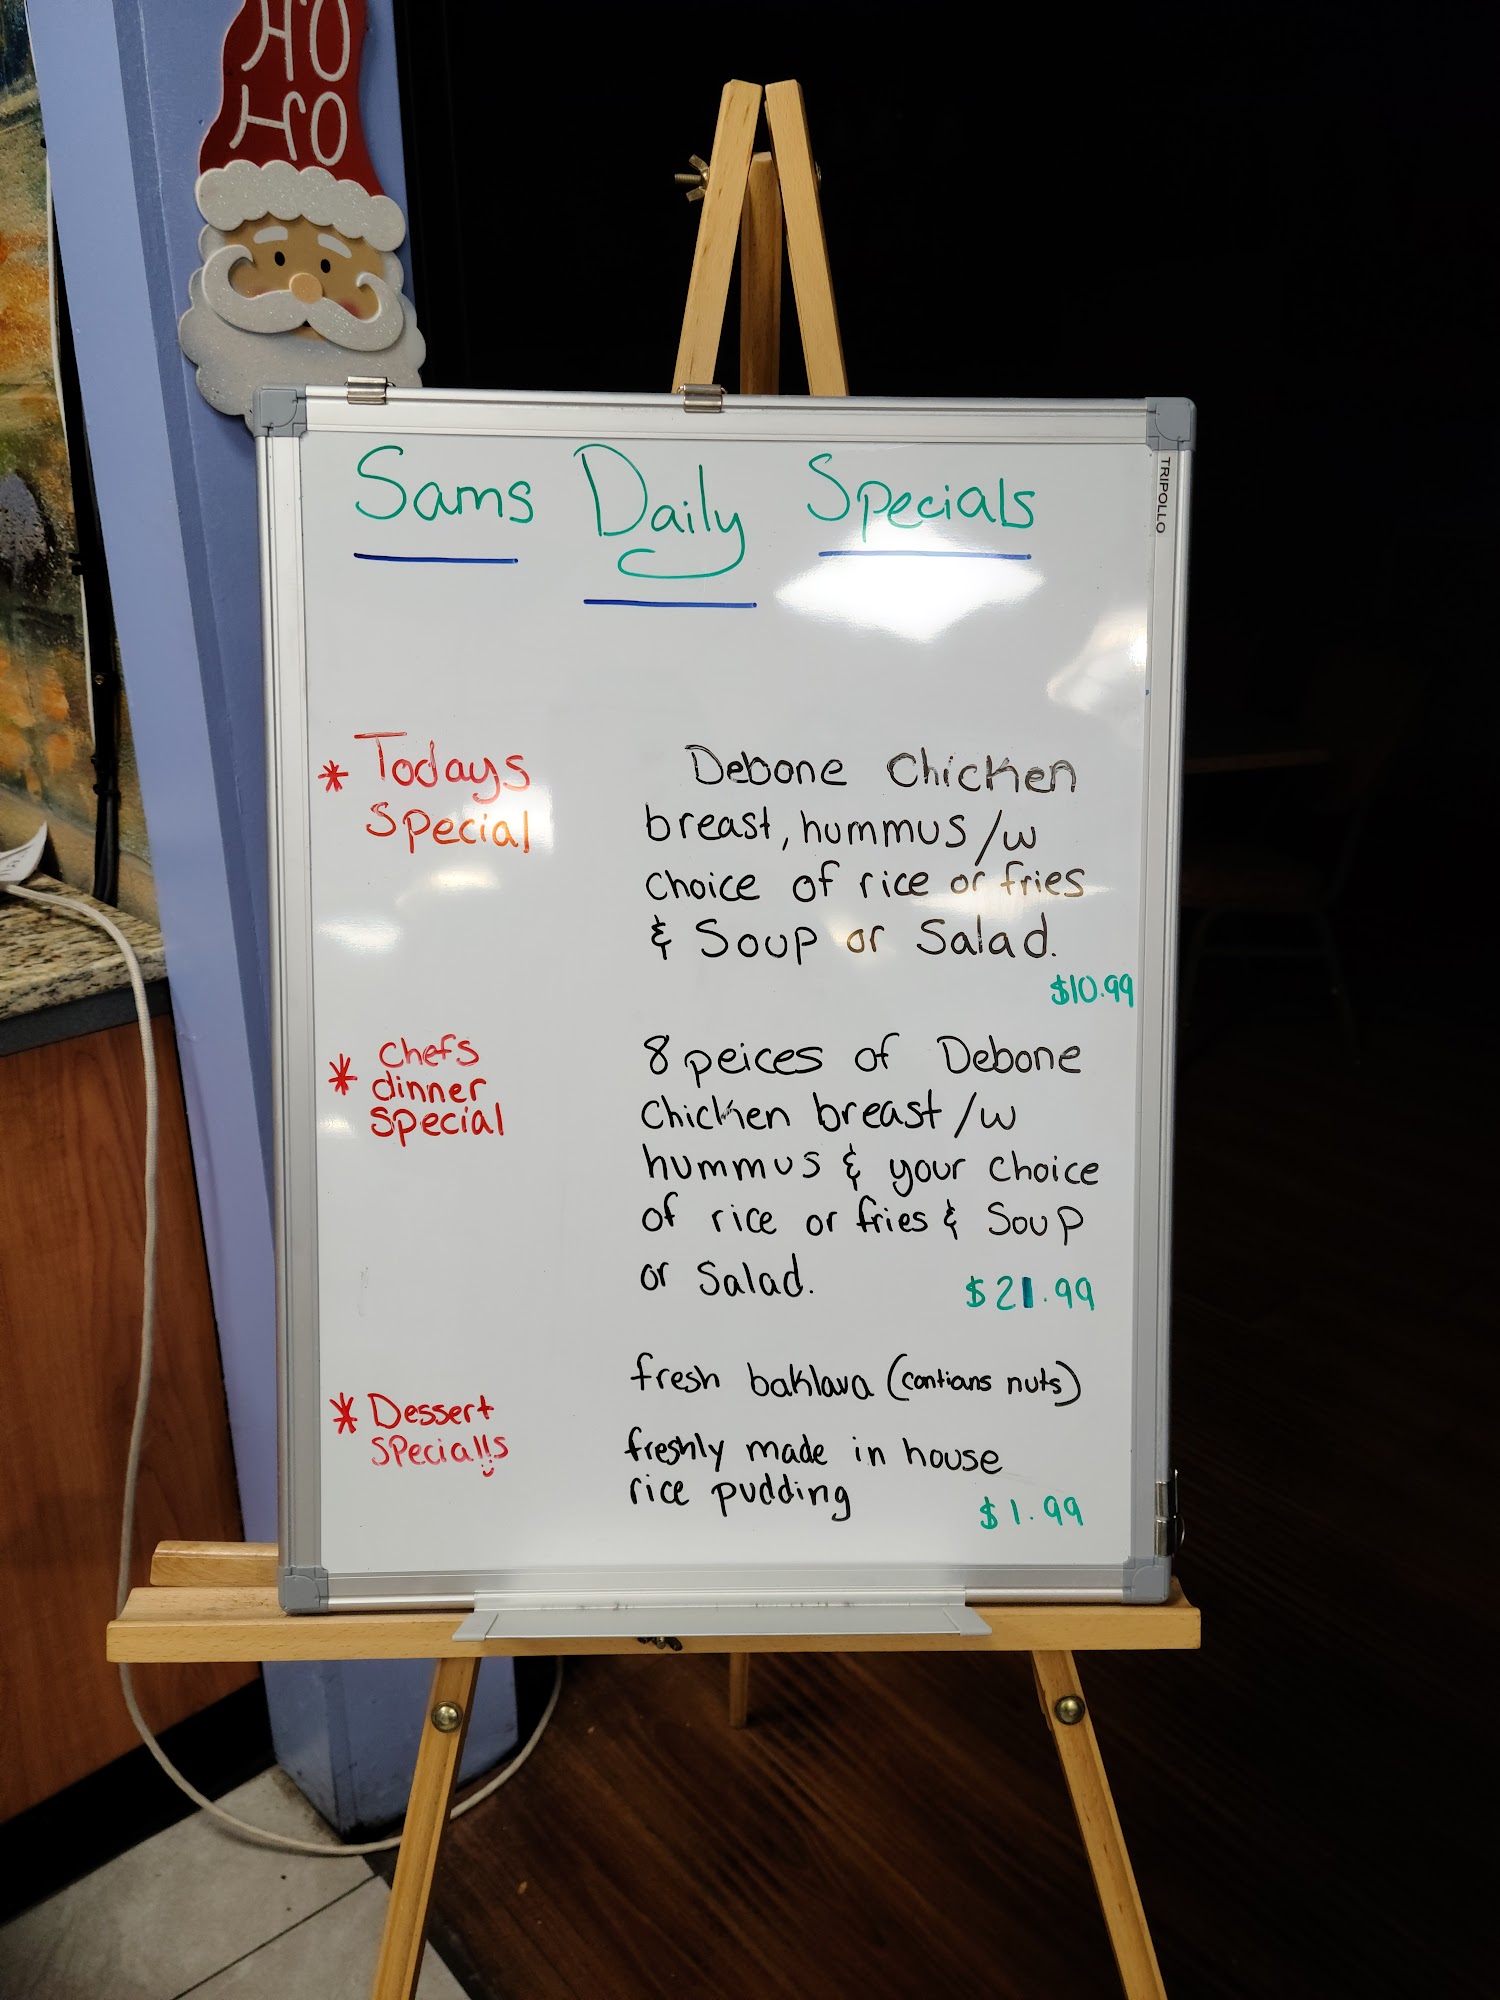 HO
HO
TRIPOLLO
Sams Daily Specials
* Todays
Special
Debone Chicken
breast, hummus /w
choice of rice or fries
& Soup or Salad.
$10.99
* Chefs
dinner
special
8 peices of Debone
Chicken breast /w
hummus & your choice
of rice or fries & Soup
or Salad.
$21.99
* Dessert
specialls
fresh baklava (contians nuts)
freshly made in house
rice pudding
$1.99